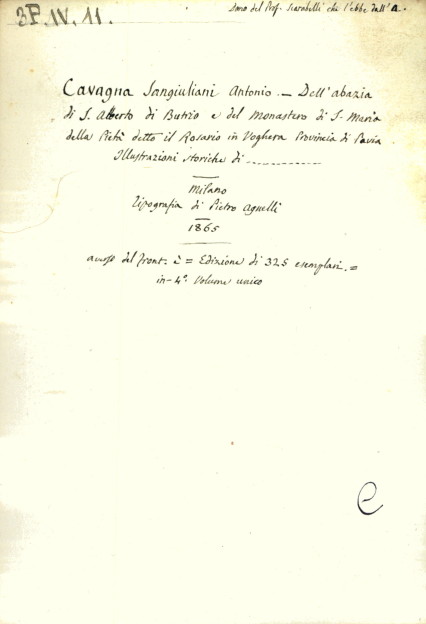 3P. IV. 11.
Dono del Prof. Scarabelli che l'ebbe dall'A.
Cavagna Sangiuliani Antonio. — Dell'abazia
di S. Alberto di Butrio e del monastero di S. Maria
della Pietà detto il Rosario in Voghera Provincia di Pavia.
Illustrazioni storiche di ............
Milano
Tipografia di Pietro Agnelli
1865
del front. è = Edizione di 325 esemplari. =
in-4°. Volume unico
e